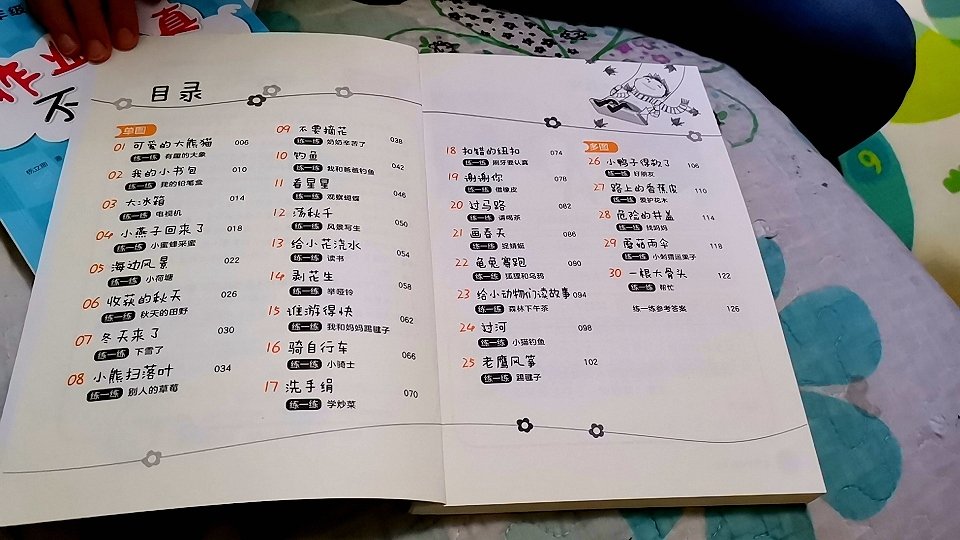 年级
作业
真
不
目录
单图
01 可爱的大熊猫 006
练一练 有趣的大象
02 我的小书包 010
练一练 我的铅笔盒
03 大冰箱 014
练一练 电视机
04 小燕子回来了 018
练一练 小蜜蜂采蜜
05 海边风景 022
练一练 小荷塘
06 收获的秋天 026
练一练 秋天的田野
07 冬天来了 030
练一练 下雪了
08 小熊扫落叶 034
练一练 别人的草莓
09 不要摘花 038
练一练 奶奶辛苦了
10 钓鱼 042
练一练 我和爸爸钓鱼
11 看星星 046
练一练 观察蝴蝶
12 荡秋千 050
练一练 风景写生
13 给小花浇水 054
练一练 读书
14 剥花生 058
练一练 举哑铃
15 谁游得快 062
练一练 我和妈妈踢毽子
16 骑自行车 066
练一练 小骑士
17 洗手绢 070
练一练 学炒菜
18 扣错的纽扣 074
练一练 刷牙要认真
19 谢谢你 078
练一练 借橡皮
20 过马路 082
练一练 请喝茶
21 画春天 086
练一练 捉蜻蜓
22 龟兔赛跑 090
练一练 狐狸和乌鸦
23 给小动物们读故事 094
练一练 森林下午茶
24 过河 098
练一练 小猫钓鱼
25 老鹰风筝 102
练一练 踢毽子
多图
26 小鸭子得救了 106
练一练 好朋友
27 路上的香蕉皮 110
练一练 爱护花木
28 危险的井盖 114
练一练 找妈妈
29 蘑菇雨伞 118
练一练 小刺猬运果子
30 一根大骨头 122
练一练 帮忙
练一练参考答案 126